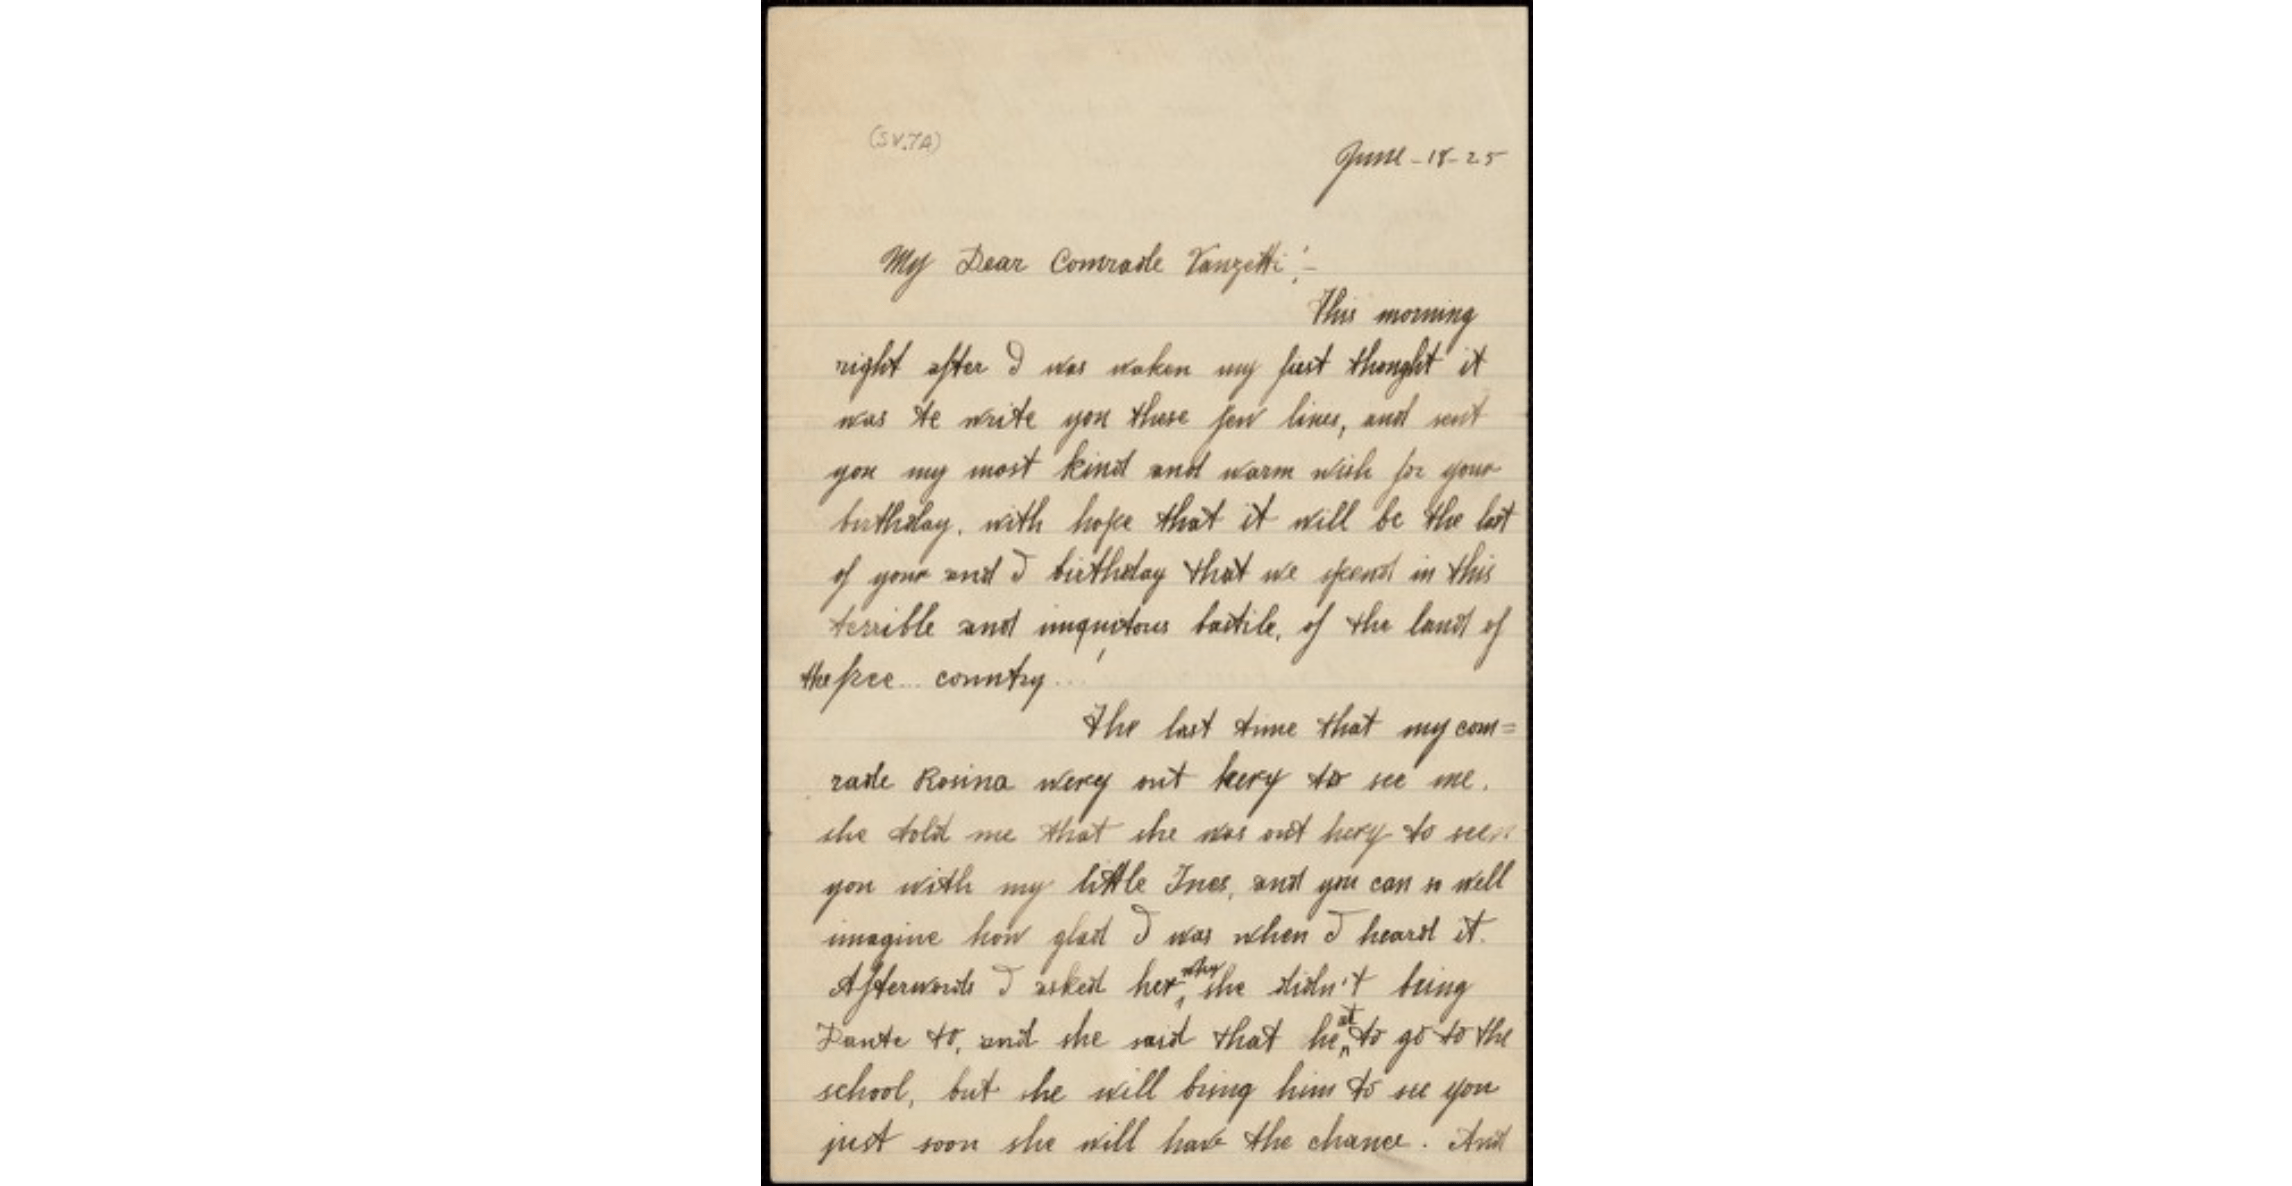 (SV.7A)
June - 18 - 25
My Dear Comrade Vanzetti!-
This morning
right after I was waken my first thought it
was te write you these few lines, and sent
you my most kind and warm wish for your
birthday. with hope that it will be the last
of your and I birthday that we spend in this
terrible and iniquitous bastile, of the land of
the free... country...
The last time that my com=
rade Rosina wery out hery to see me.
she told me that she was out hery to seen
you with my little Ines, and you can so well
imagine how glad I was when I heard it.
Afterwords I asked her why she didn't bring
Dante to, and she said that he at to go to the
school, but she will bring him to see you
just soon she will have the chance. And